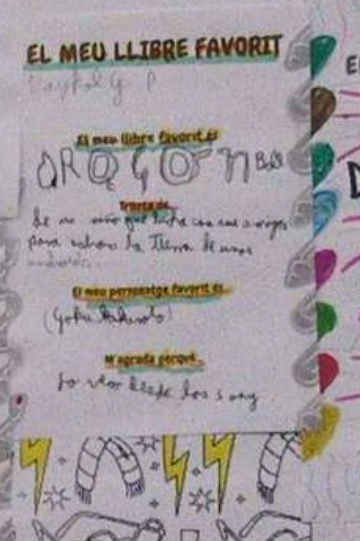 EL MEU LLIBRE FAVORIT
El meu llibre favorit és
DRAGON Ball
Tracta de...
De un niño que lucha con sus amigos
para salvar la Tierra de unos
El meu personatge favorit és...
(Goku Kakaroto)
M'agrada perquè...
Lo veo desde los 5 any